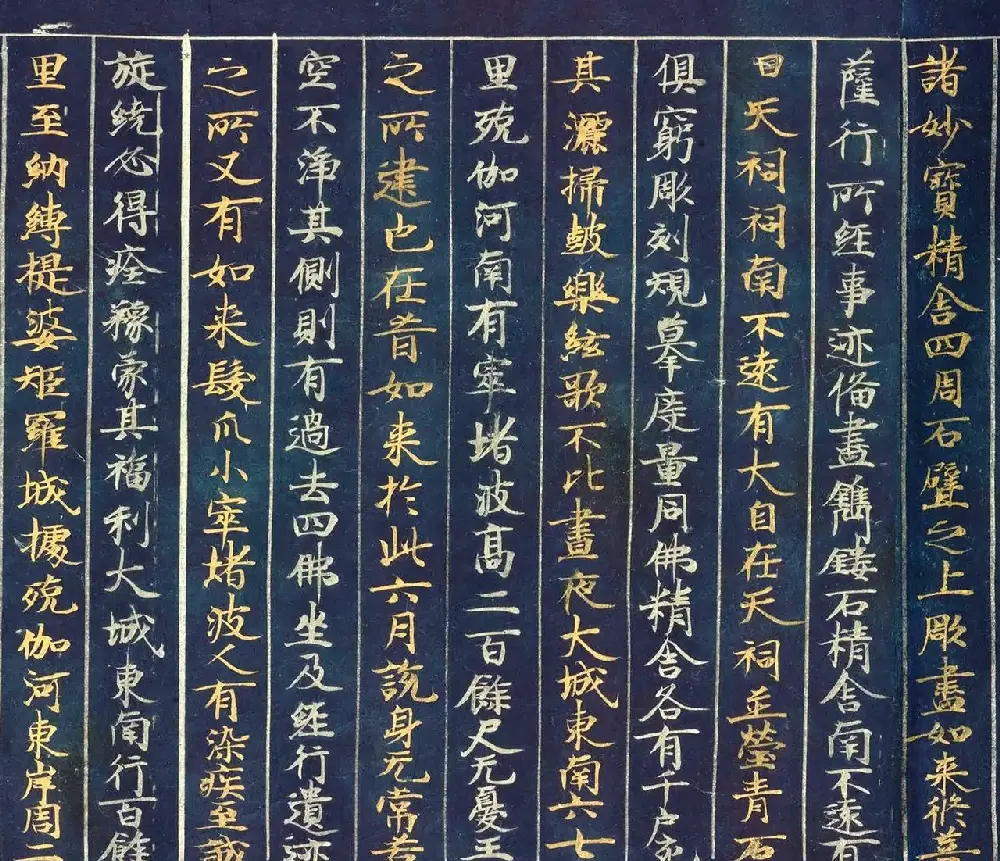 諸妙寶精舍四周石壁之上彫畫如来脩菩
薩行所經事迹俻盡鐫鏤石精舍南不遠有
日天祠祠南不遠有大自在天祠並瑩青石
俱窮彫刻規摹度量同佛精舍各有千户充
其灑掃鼓樂絃歌不比晝夜大城東南六七
里殑伽河南有窣堵波髙二百餘尺无憂王
之所建也在昔如来於此六月說身无常苦
空不淨其側則有過去四佛坐及經行遺迹
之所又有如来髮爪小窣堵波人有染疾至誠
旋繞必得痊瘳蒙其福利大城東南行百餘
里至納縛提婆矩羅城據殑伽河東岸周二